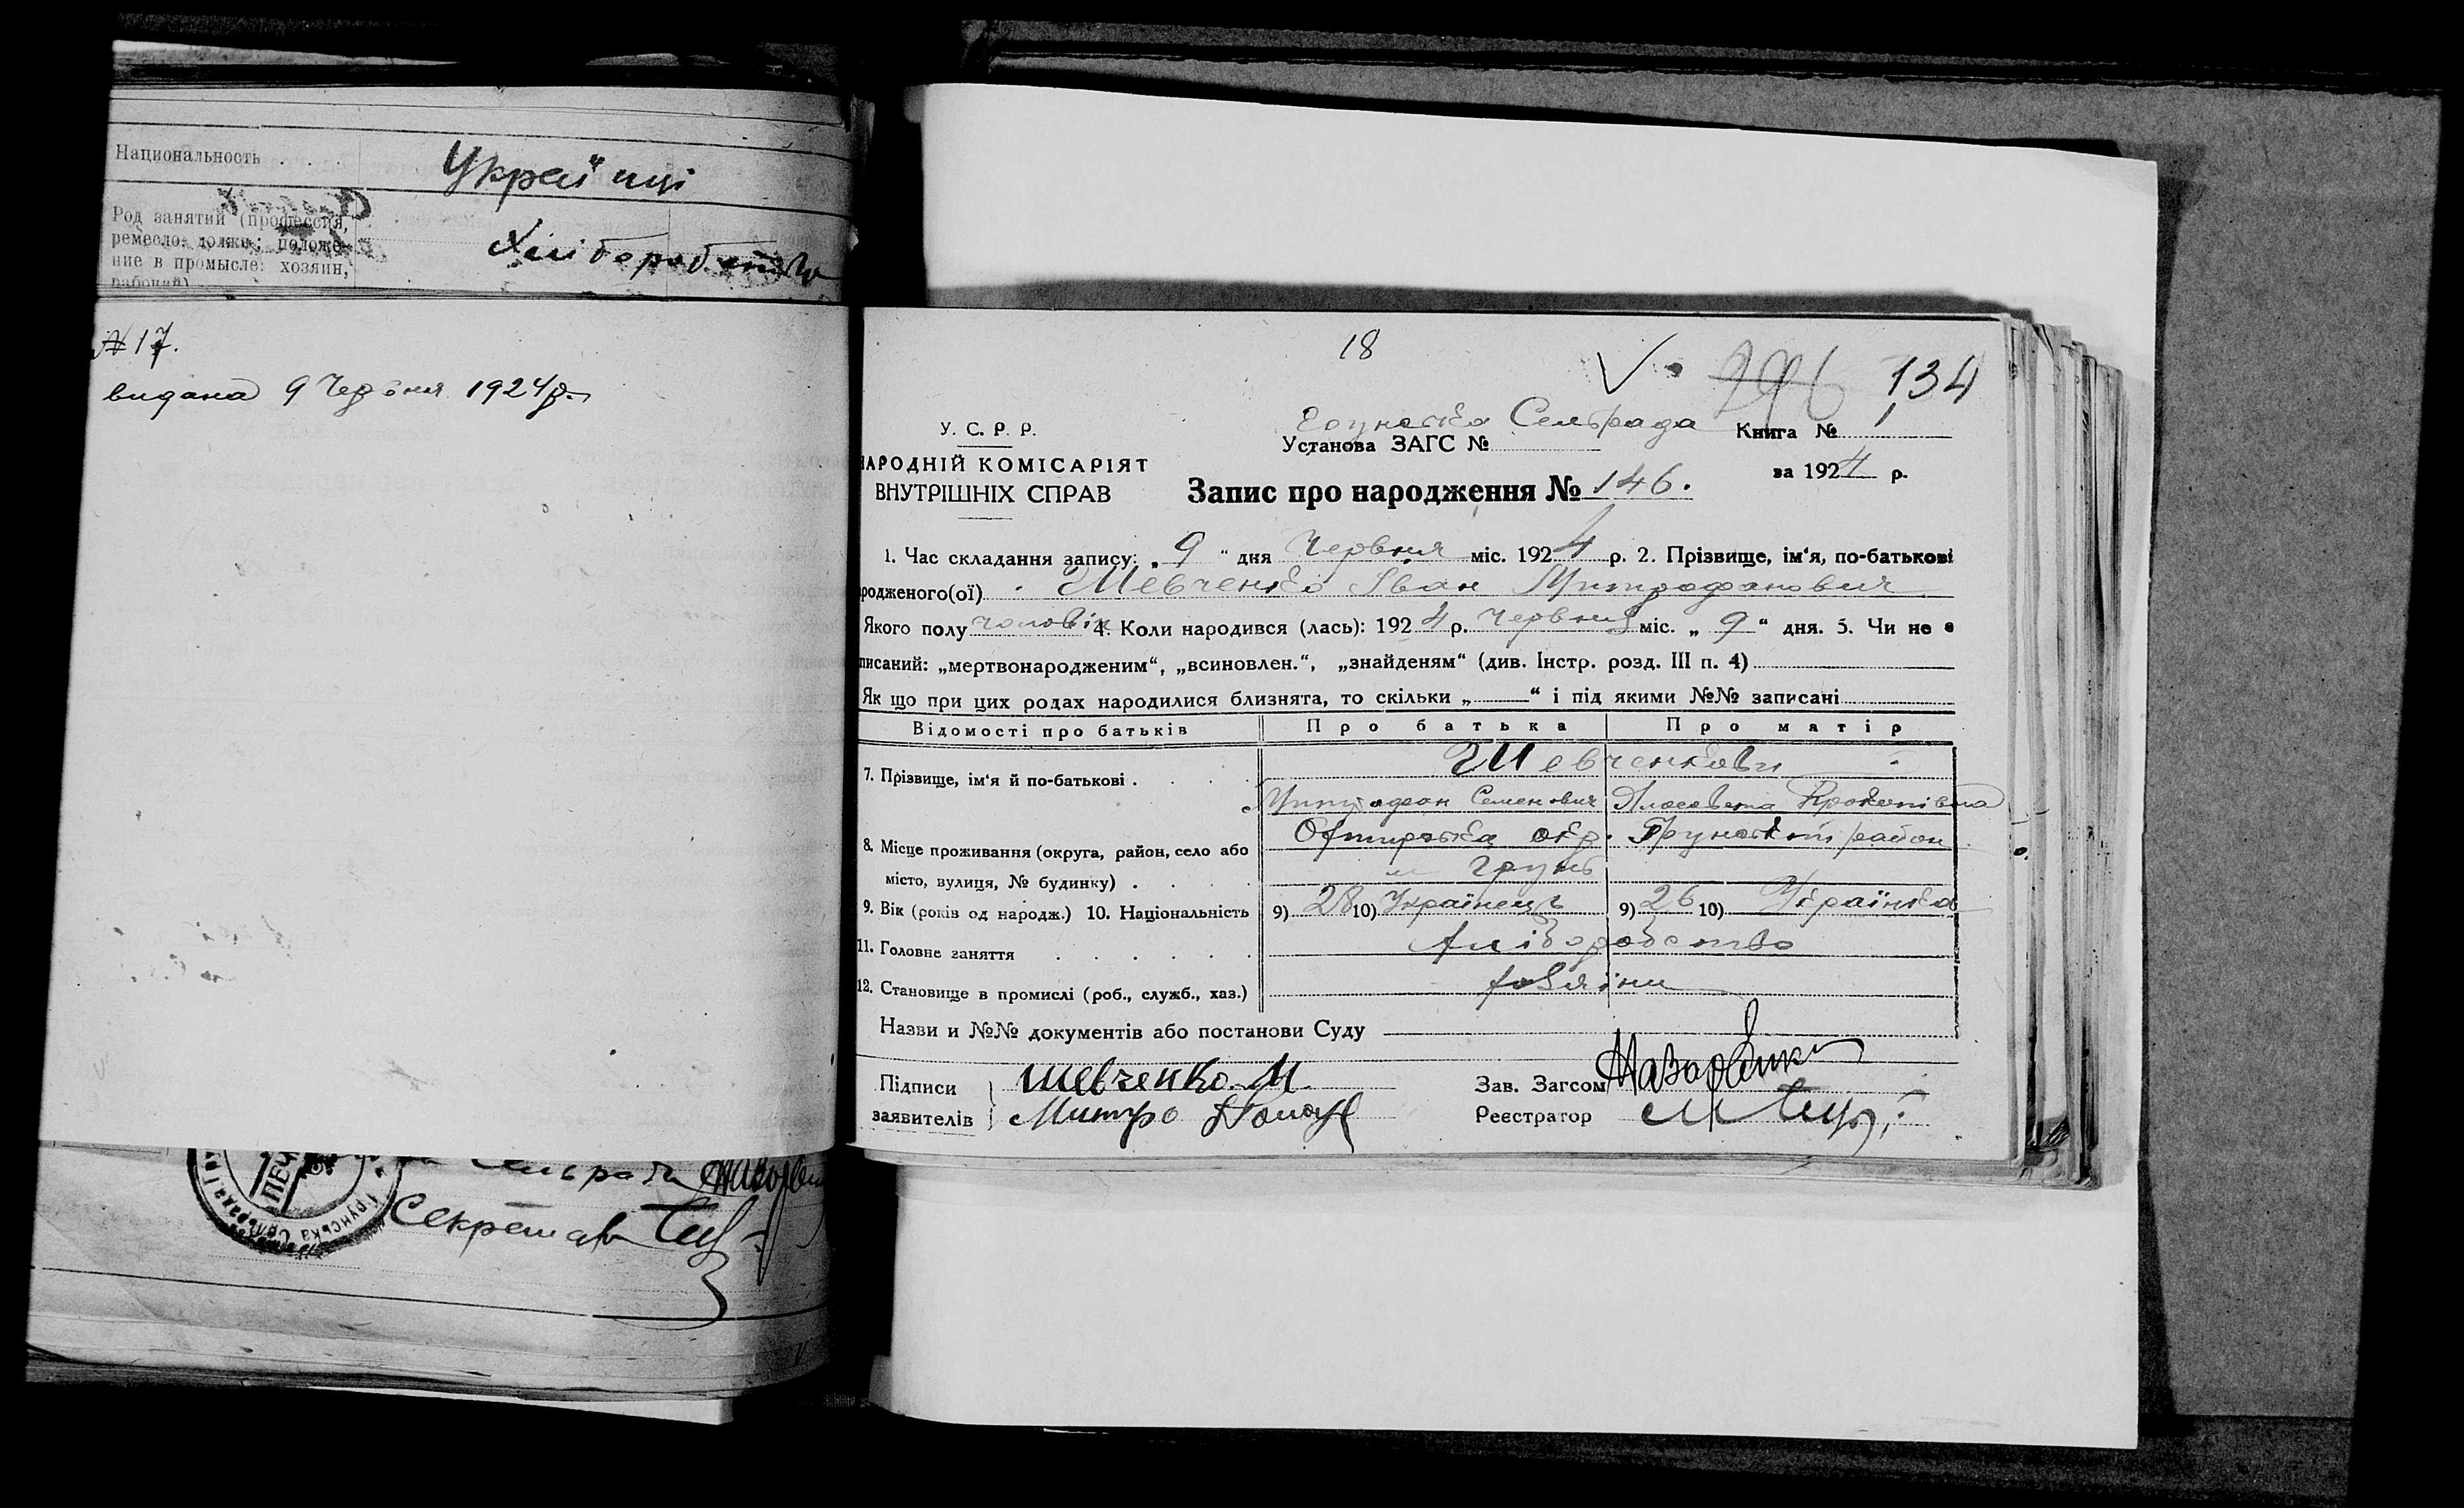 Национальность . . .
Українці
Род занятий (профессия,
ремесло: должн; положе-
ние в промысле: хозяин,
рабочий)
Хліборобство
№ 17.
видана 9 Червня 1924р.
ПЕЧ
Грунська Сельрада
Сельради
Секретар
18
134
У. С. Р. Р.
Грунська Сельрада
Установа ЗАГС №
Книга №
НАРОДНІЙ КОМІСАРІЯТ
ВНУТРІШНІХ СПРАВ
за 1924 р.
Запис про народження № 146.
1. Час складання запису: „ 9 “ дня Червня міс. 1924 р. 2. Прізвище, ім‘я, по-батькові
родженого(ої) Шевченко Іван Митрофанович
Якого полу чоловік 4. Коли народився (лась): 1924 р. Червня міс. „ 9 “ дня. 5. Чи не є
писаний: „мертвонародженим“, „всиновлен.“, „знайденям“ (див. Інстр. розд. III п. 4)
Як що при цих родах народилися близнята, то скільки „ “ і під якими №№ записані
Відомості про батьків
Про батька
Про матір
7. Прізвище, ім‘я й по-батькові . . . .
Шевченкови
Митрофан Семенович
Єлосавета Прокопівна
8. Місце проживання (округа, район, село або
місто, вулиця, № будинку) . . . .
Охтирська окр. Грунський район
м Грунь
9. Вік (років од народж.) 10. Національність
9) 28 10) Українець
9) 26 10) Українка
11. Головне заняття . . . . . .
Хліборобство
12. Становище в промислі (роб., служб., хаз.)
хазяїни
Назви и №№ документів або постанови Суду
Підписи
заявителів
Шевченко М
Митро
Зав. Загсом
Реєстратор